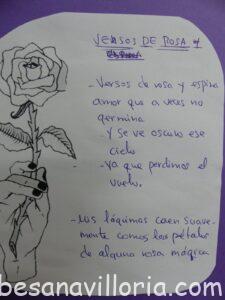 VERSOS DE ROSA Y
- Versos de rosa y espina
amor que a veces no
germina
- Y se ve oscuro ese
cielo
- Ya que perdimos el
vuelo.
- Las lágrimas caen suave-
mente como los pétalos
de alguna rosa mágica
besanavilloria.com